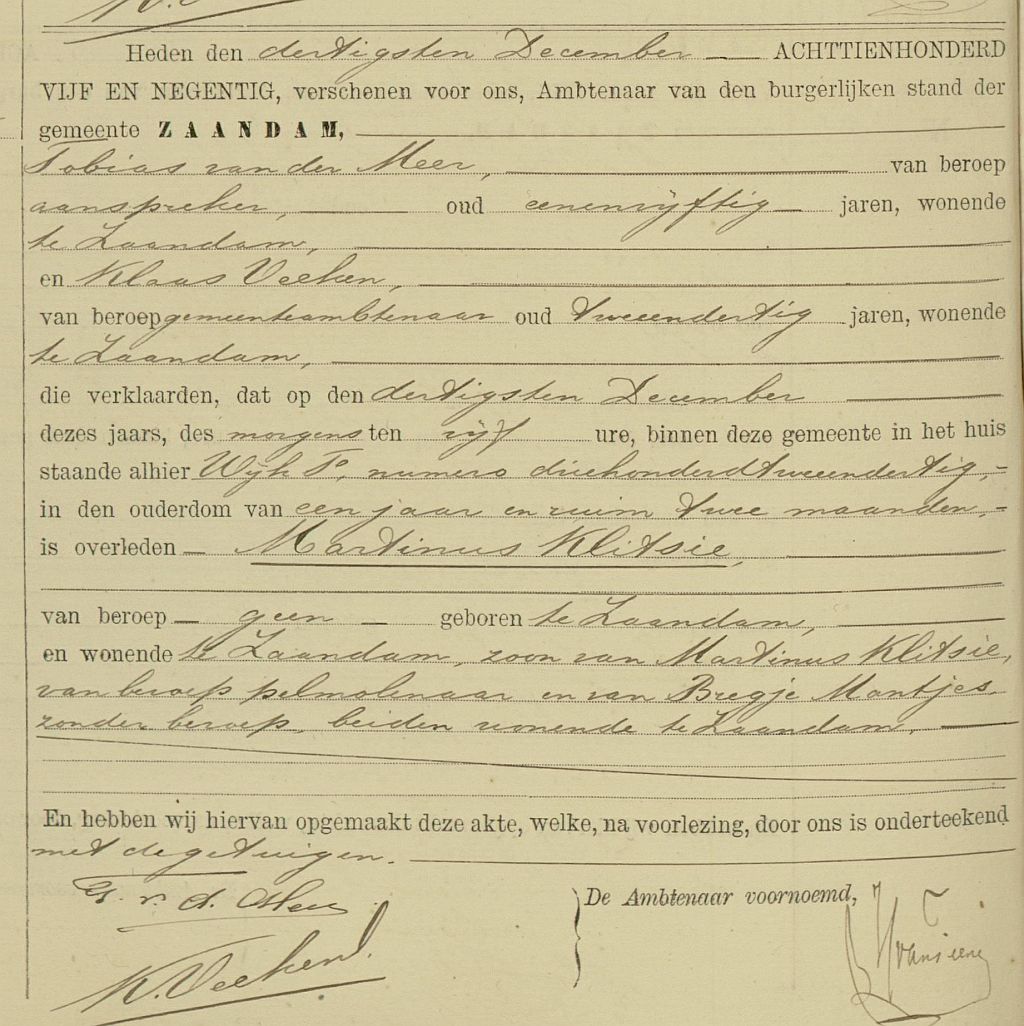 Heden den dertigsten December ACHTTIENHONDERD
VIJF EN NEGENTIG, verschenen voor ons, Ambtenaar van den burgerlijken stand der
gemeente ZAANDAM,
Tobias van der Meer, van beroep
aanspreker, oud eenenvijftig jaren, wonende
te Zaandam,
en Klaas Veeken,
van beroep gemeenteambtenaar oud tweeendertig jaren, wonende
te Zaandam,
die verklaarden, dat op den dertigsten December
dezes jaars, des morgens ten vijf ure, binnen deze gemeente in het huis
staande alhier Wijk To, numero driehonderdtweeendertig,
in den ouderdom van een jaar en ruim twee maanden,
is overleden Martinus Klitsie,
van beroep geen geboren te Zaandam,
en wonende te Zaandam, zoon van Martinus Klitsie,
van beroep pelmolenaar en van Bregje Mantjes
zonder beroep, beiden wonende te Zaandam,
En hebben wij hiervan opgemaakt deze akte, welke, na voorlezing, door ons is onderteekend
met de getuigen.
v. d. Meer
De Ambtenaar voornoemd,
K. Veeken